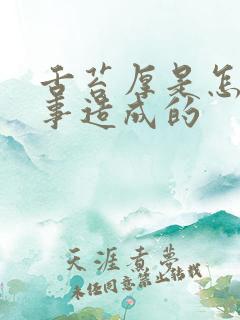 舌苔厚是怎
事造成的
天涯煮梦
未经同意禁止转载